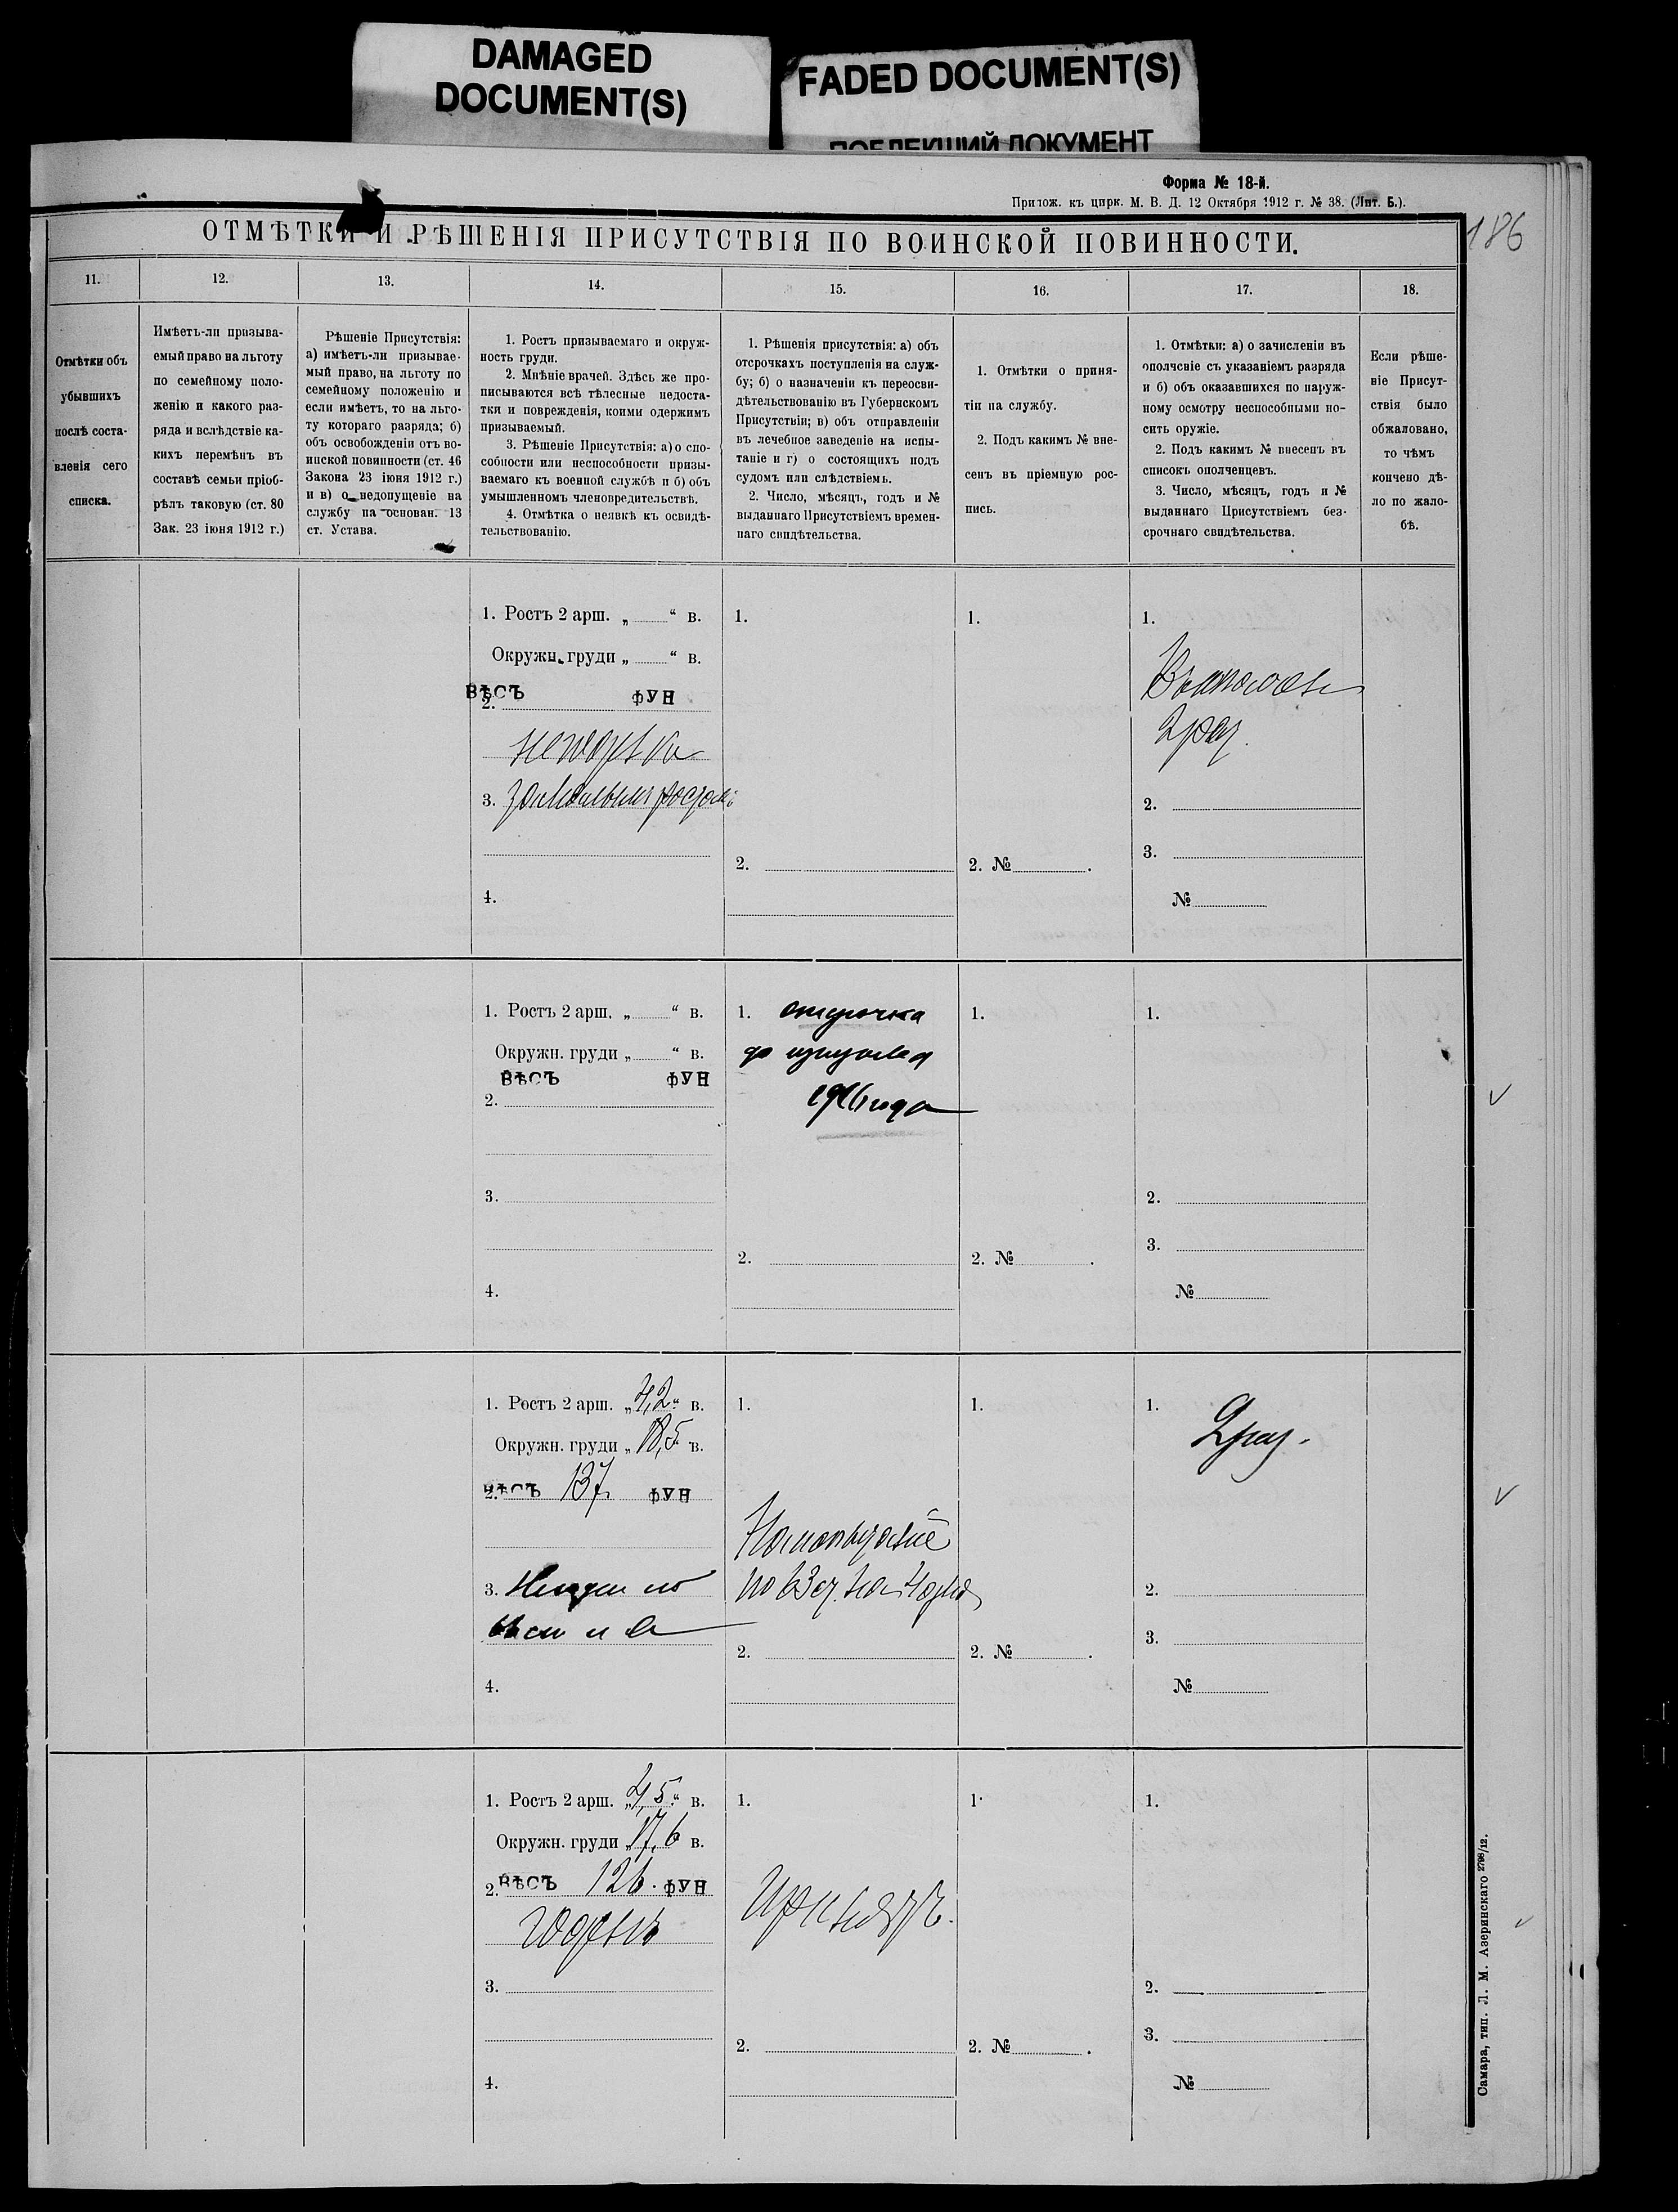 DAMAGED
DOCUMENT(S)
FADED DOCUMENT(S)
ПОБЛЕКШИЙ ДОКУМЕНТ
Форма № 18-й.
Прилож. къ цирк. М. В. Д. 12 Октября 1912 г. № 38. (Лит. Б.).
186
ОТМѢТКИ И РѢШЕНІЯ ПРИСУТСТВІЯ ПО ВОИНСКОЙ ПОВИННОСТИ.
11.
12.
13.
14.
15.
16.
17.
18.
Отмѣтки объ
убывшихъ
послѣ соста-
вленія сего
списка.
Имѣетъ-ли призыва-
емый право на льготу
по семейному поло-
женію и какого раз-
ряда и вслѣдствіе ка-
кихъ перемѣнъ въ
составѣ семьи пріоб-
рѣлъ таковую (ст. 80
Зак. 23 іюня 1912 г.)
Рѣшеніе Присутствія:
а) имѣетъ-ли призывае-
мый право, на льготу по
семейному положенію и
если имѣетъ, то на льго-
ту котораго разряда; б)
объ освобожденіи отъ во-
инской повинности (ст. 46
Закона 23 іюня 1912 г.)
и в) о недопущеніе на
службу на основан. 13
ст. Устава.
1. Ростъ призываемаго и окруж-
ность груди.
2. Мнѣніе врачей. Здѣсь же про-
писываются всѣ тѣлесные недоста-
тки и поврежденія, коими одержимъ
призываемый.
3. Рѣшеніе Присутствія: а) о спо-
собности или неспособности призы-
ваемаго къ военной службѣ и б) объ
умышленномъ членовредительствѣ.
4. Отмѣтка о неявкѣ къ освидѣ-
тельствованію.
1. Рѣшенія присутствія: а) объ
отсрочкахъ поступленія на служ-
бу; б) о назначеніи къ переосви-
дѣтельствованію въ Губернскомъ
Присутствіи; в) объ отправленіи
въ лечебное заведеніе на испы-
таніе и г) о состоящихъ подъ
судомъ или слѣдствіемъ.
2. Число, мѣсяцъ, годъ и №
выданнаго Присутствіемъ времен-
наго свидѣтельства.
1. Отмѣтки о приня-
тіи на службу.
2. Подъ какимъ № вне-
сенъ въ пріемную рос-
пись.
1. Отмѣтки: а) о зачисленіи въ
ополченіе съ указаніемъ разряда
и б) объ оказавшихся по наруж-
ному осмотру неспособными но-
сить оружіе.
2. Подъ какимъ № внесенъ въ
списокъ ополченцевъ.
3. Число, мѣсяцъ, годъ и №
выданнаго Присутствіемъ без-
срочнаго свидѣтельства.
Если рѣше-
ніе Присут-
ствія было
обжаловано,
то чѣмъ
кончено дѣ-
ло по жало-
бѣ.
1. Ростъ 2 арш. „ “ в.
Окружн. груди „ “ в.
ВѢСЪ ФУН
2.
3.
4.
1.
2.
1.
2. №
1.
2 раз.
2.
3.
№
1. Ростъ 2 арш. „ “ в.
Окружн. груди „ “ в.
ВѢСЪ ФУН
2.
3.
4.
1. отсрочка
до призыва
1916 года
2.
1.
2. №
1.
2.
3.
№
1. Ростъ 2 арш. „4,2“ в.
Окружн. груди „18,5 в.
2. ВѢСЪ 137 ФУН
3.
4.
1.
2.
1.
2. №
1. 2 раз.
2.
3.
№
1. Ростъ 2 арш. „4,5“ в.
Окружн. груди „17,6 в.
2. ВѢСЪ 126. ФУН
годенъ
3.
4.
1.
Принятъ.
2.
1.
2. №
1.
2.
3.
№
Самара, тип. Л. М. Азеринскаго 2798/12.